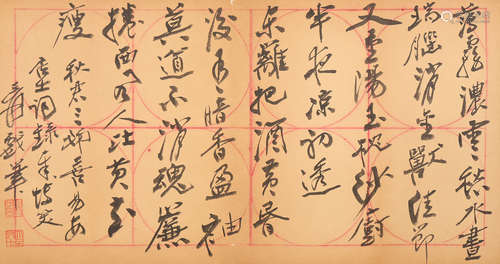 薄霧濃雲愁永晝
瑞腦消金獸佳節
又重陽玉枕紗廚
半夜涼初透
東籬把酒黃昏
後有暗香盈袖
莫道不消魂簾
捲西風人比黃花
瘦 喜易安
詞錄奉博笑
爰戲筆